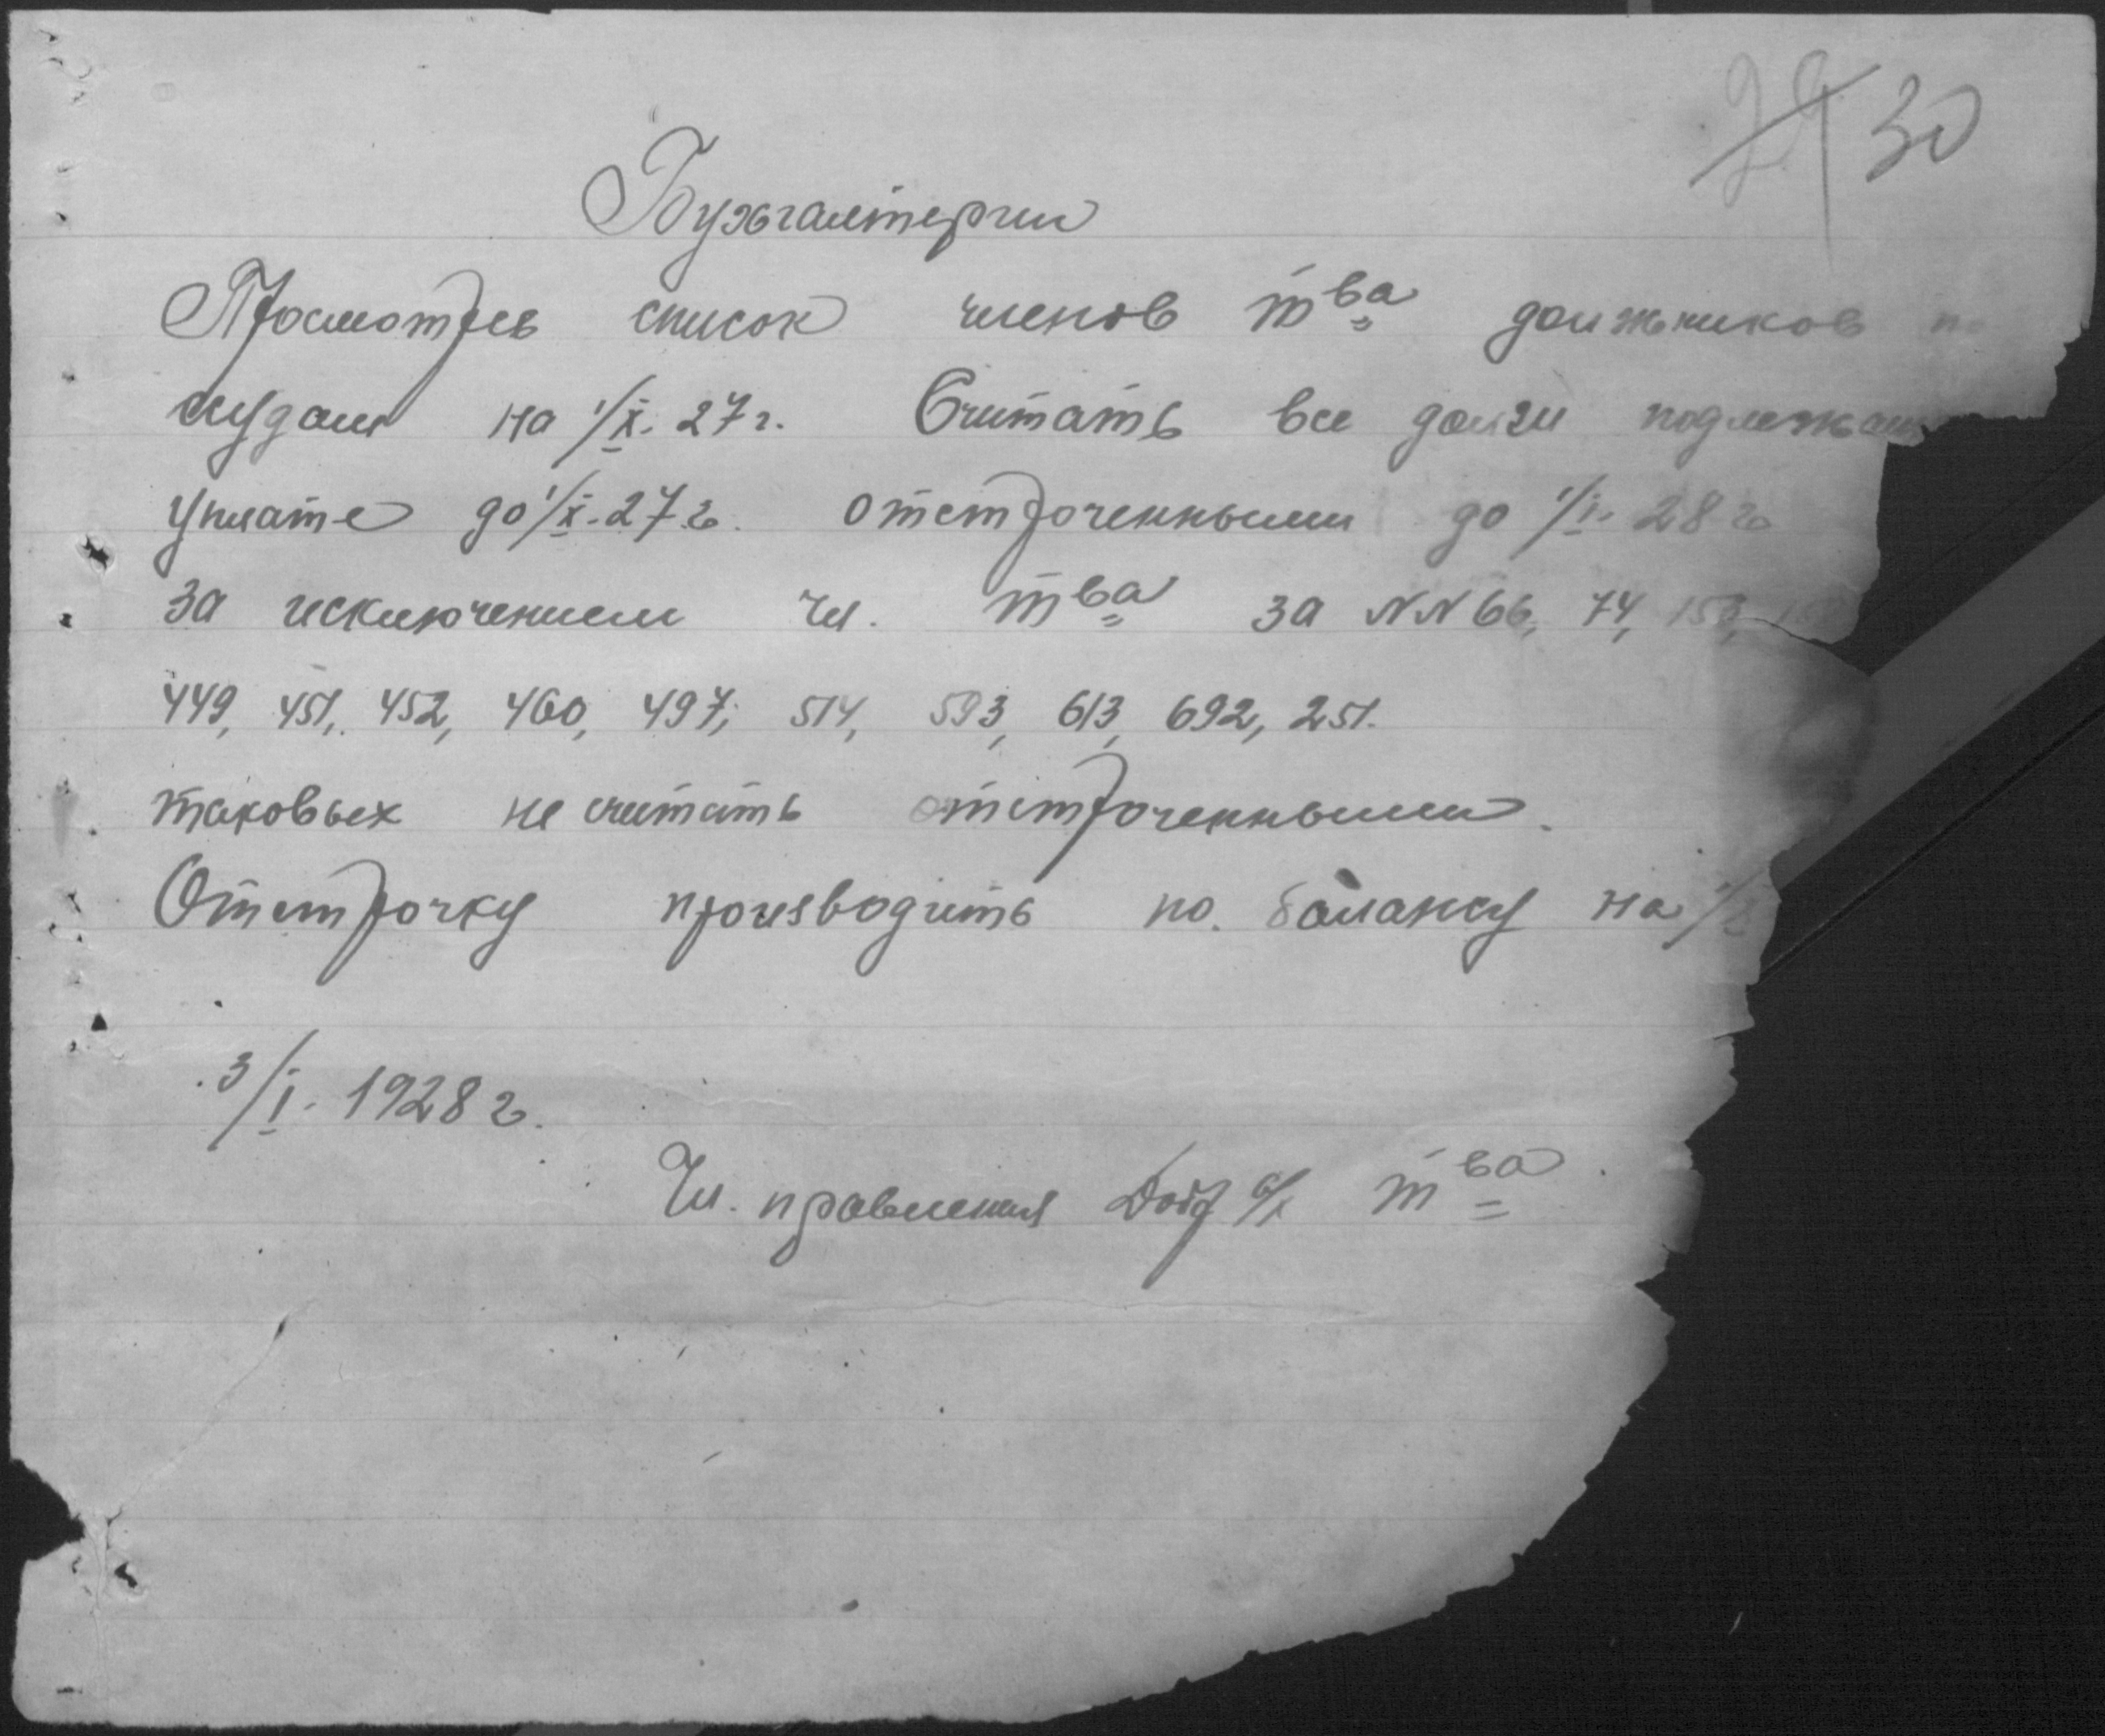 29 30
Бухгалтерии
Просмотрев список членов тва должников
ссудам на 1/X. 27 г. Считать все долги
уплате до 1/X. 27 г. отстроченными до 1/I. 28 г
за исключением чл. тва за NN 66, 74,
449, 451, 452, 460, 497, 514, 593, 613, 692, 251.
таковых не считать отстроченными.
Отстрочку производить по балансу на
3/I. 1928 г.
Чл. правления с/х тва